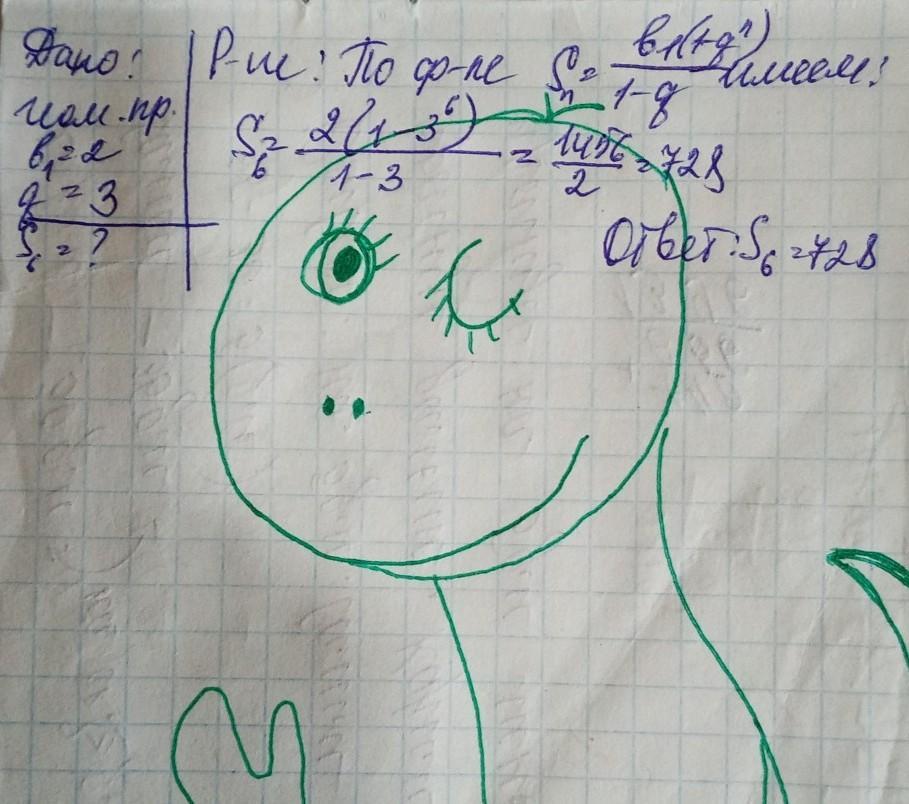 Дано:
геом.пр.
b₁ = 2
q = 3
S₆ = ?
Р-ие: По ф-ле Sₙ = b₁(1-qⁿ) / 1-q имеем:
S₆ = 2(1-3⁶) / 1-3 = 1456 / 2 = 728
Ответ: S₆ = 728